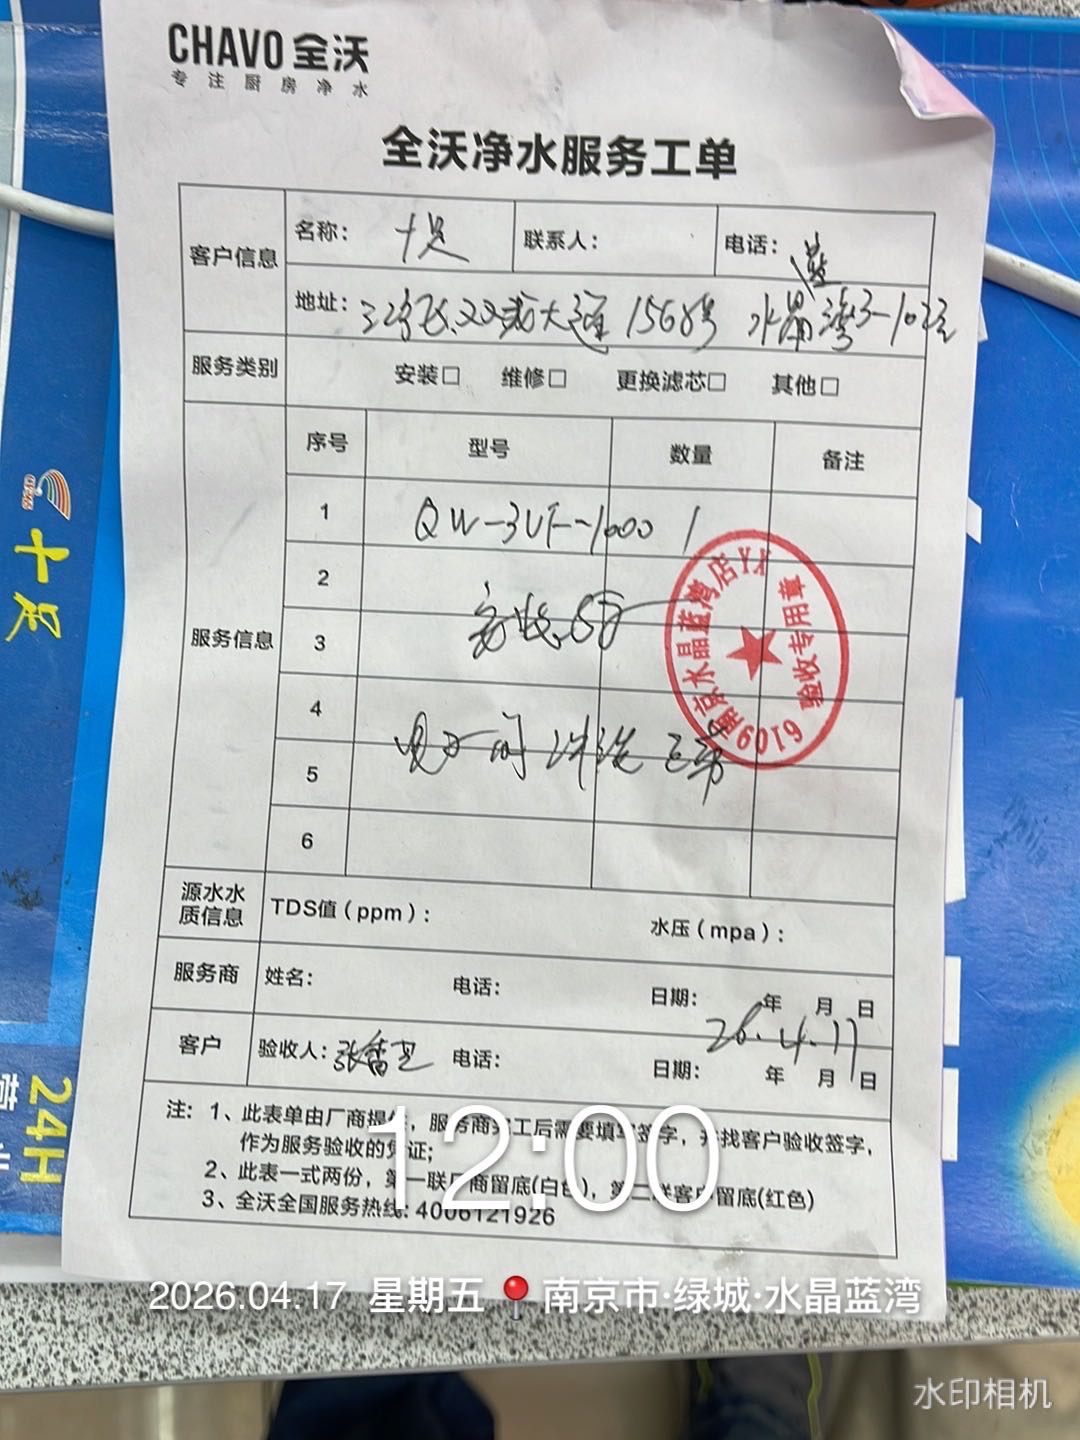 CHAVO 全沃
专注厨房净水
全沃净水服务工单
客户信息
名称： 十足
联系人：
电话：
蓝
地址：江宁区双龙大道1568号 水晶湾3-102室
服务类别
安装□ 维修□ 更换滤芯□ 其他□
服务信息
序号 型号 数量 备注
1 QW-3UF-1000 1
2
3 安装
4
电子阀冲洗正常
5
6
南京水晶蓝湾店YX
验收专用章
6019
源水水质信息
TDS值（ppm）：
水压（mpa）：
服务商
姓名： 电话： 日期： 年 月 日
26.4.17
客户
验收人：张 电话： 日期： 年 月 日
注：1、此表单由厂商提供，服务商完工后需要填写签字，并找客户验收签字，
作为服务验收的凭证；
2、此表一式两份，第一联厂商留底(白色)，第二联客户留底(红色)
3、全沃全国服务热线：4006121926
12:00
2026.04.17 星期五 南京市·绿城·水晶蓝湾
水印相机
十足
24H